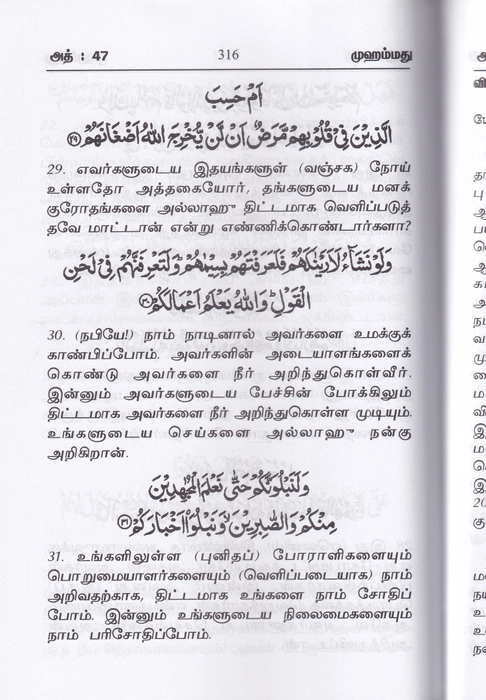 அத் : 47 316 முஹம்மது
اَمْ حَسِبَ
الَّذِيْنَ فِيْ قُلُوْبِهِمْ مَّرَضٌ اَنْ لَّنْ يُّخْرِجَ اللّٰهُ اَضْغَانَهُمْ ۟
29. எவர்களுடைய இதயங்களுள் (வஞ்சக) நோய்
உள்ளதோ அத்தகையோர், தங்களுடைய மனக்
குரோதங்களை அல்லாஹு திட்டமாக வெளிப்படுத்
தவே மாட்டான் என்று எண்ணிக்கொண்டார்களா?
وَلَوْ نَشَآءُ لَاَرَيْنٰكَهُمْ فَلَعَرَفْتَهُمْ بِسِيْمٰهُمْ ؕ وَلَتَعْرِفَنَّهُمْ فِيْ لَحْنِ
الْقَوْلِ ؕ وَاللّٰهُ يَعْلَمُ اَعْمَالَكُمْ ۟
30. (நபியே!) நாம் நாடினால் அவர்களை உமக்குக்
காண்பிப்போம். அவர்களின் அடையாளங்களைக்
கொண்டு அவர்களை நீர் அறிந்துகொள்வீர்.
இன்னும் அவர்களுடைய பேச்சின் போக்கிலும்
திட்டமாக அவர்களை நீர் அறிந்துகொள்ள முடியும்.
உங்களுடைய செய்களை அல்லாஹு நன்கு
அறிகிறான்.
وَلَنَبْلُوَنَّكُمْ حَتّٰى نَعْلَمَ الْمُجٰهِدِيْنَ
مِنْكُمْ وَالصّٰبِرِيْنَ ۙ وَنَبْلُوَا۟ اَخْبَارَكُمْ ۟
31. உங்களிலுள்ள (புனிதப்) போராளிகளையும்
பொறுமையாளர்களையும் (வெளிப்படையாக) நாம்
அறிவதற்காக, திட்டமாக உங்களை நாம் சோதிப்
போம். இன்னும் உங்களுடைய நிலைமைகளையும்
நாம் பரிசோதிப்போம்.